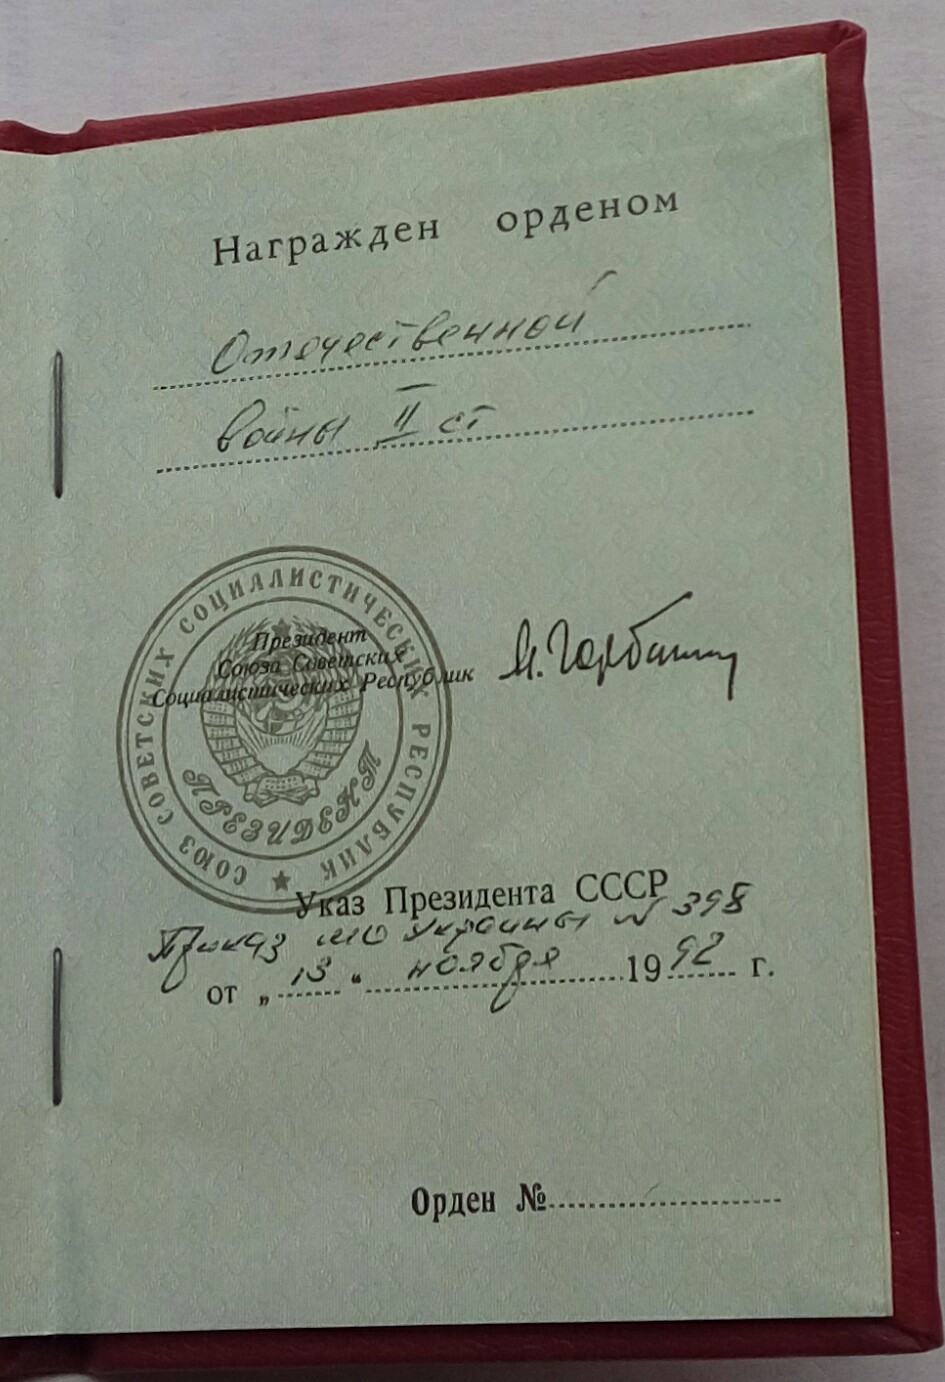 Награжден орденом
Отечественной
войны II ст
СОЮЗ СОВЕТСКИХ СОЦИАЛИСТИЧЕСКИХ РЕСПУБЛИК
Президент
Союза Советских
Социалистических Республик
М. Горбачев
ПРЕЗИДЕНТ
Указ Президента СССР
Приказ МО Украины № 398
от „13“ ноября 1992 г.
Орден №